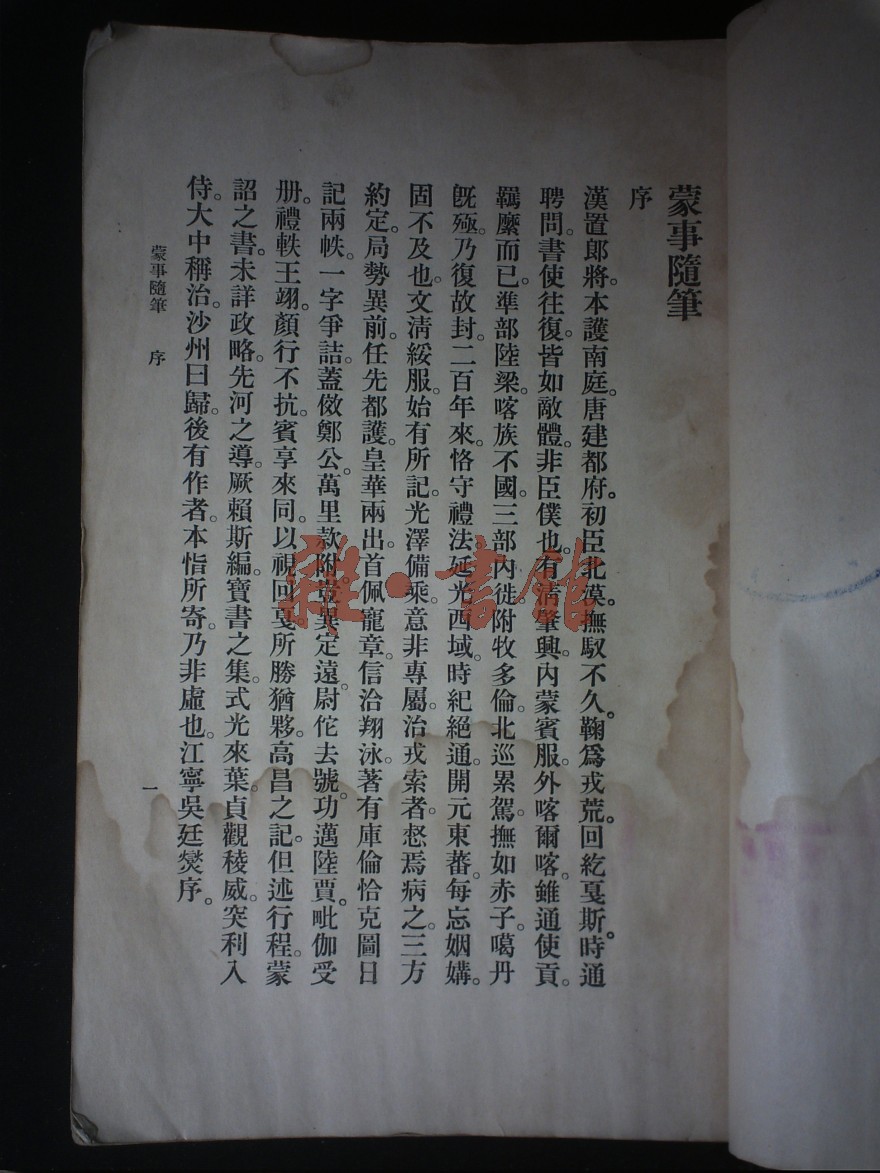 蒙事隨筆
序
漢置郎將。本護南庭。唐建都府。初臣北漠。撫馭不久。鞠爲戎荒。回紇戛斯。時通
聘問。書使往復。皆如敵體。非臣僕也。有清肇興。內蒙賓服。外喀爾喀。雖通使貢。
羈縻而已。準部陸梁。喀族不國。三部內徙。附牧多倫。北巡累駕。撫如赤子。噶丹
旣殛。乃復故封。二百年來。恪守禮法。延光西域。時紀絕通。開元東蕃。每忘姻媾。
固不及也。文淸綏服。始有所記。光澤備乘。意非專屬。治戎索者。惄焉病之。三方
約定。局勢異前。任先都護。皇華兩出。首佩寵章。信洽翔泳。著有庫倫恰克圖日
記兩帙。一字爭詰。蓋傚鄭公。萬里款附。豈異定遠。尉佗去號。功邁陸賈。毗伽受
册。禮軼王翊。顏行不抗。賓享來同。以視回戛。所勝猶夥。高昌之記。但述行程。蒙
詔之書。未詳政略。先河之導。厥賴斯編。寶書之集。式光來葉。貞觀稜威。突利入
侍。大中稱治。沙州曰歸。後有作者。本恉所寄。乃非虛也。江寧吳廷燮序。
蒙事隨筆 序 一
雜·書館